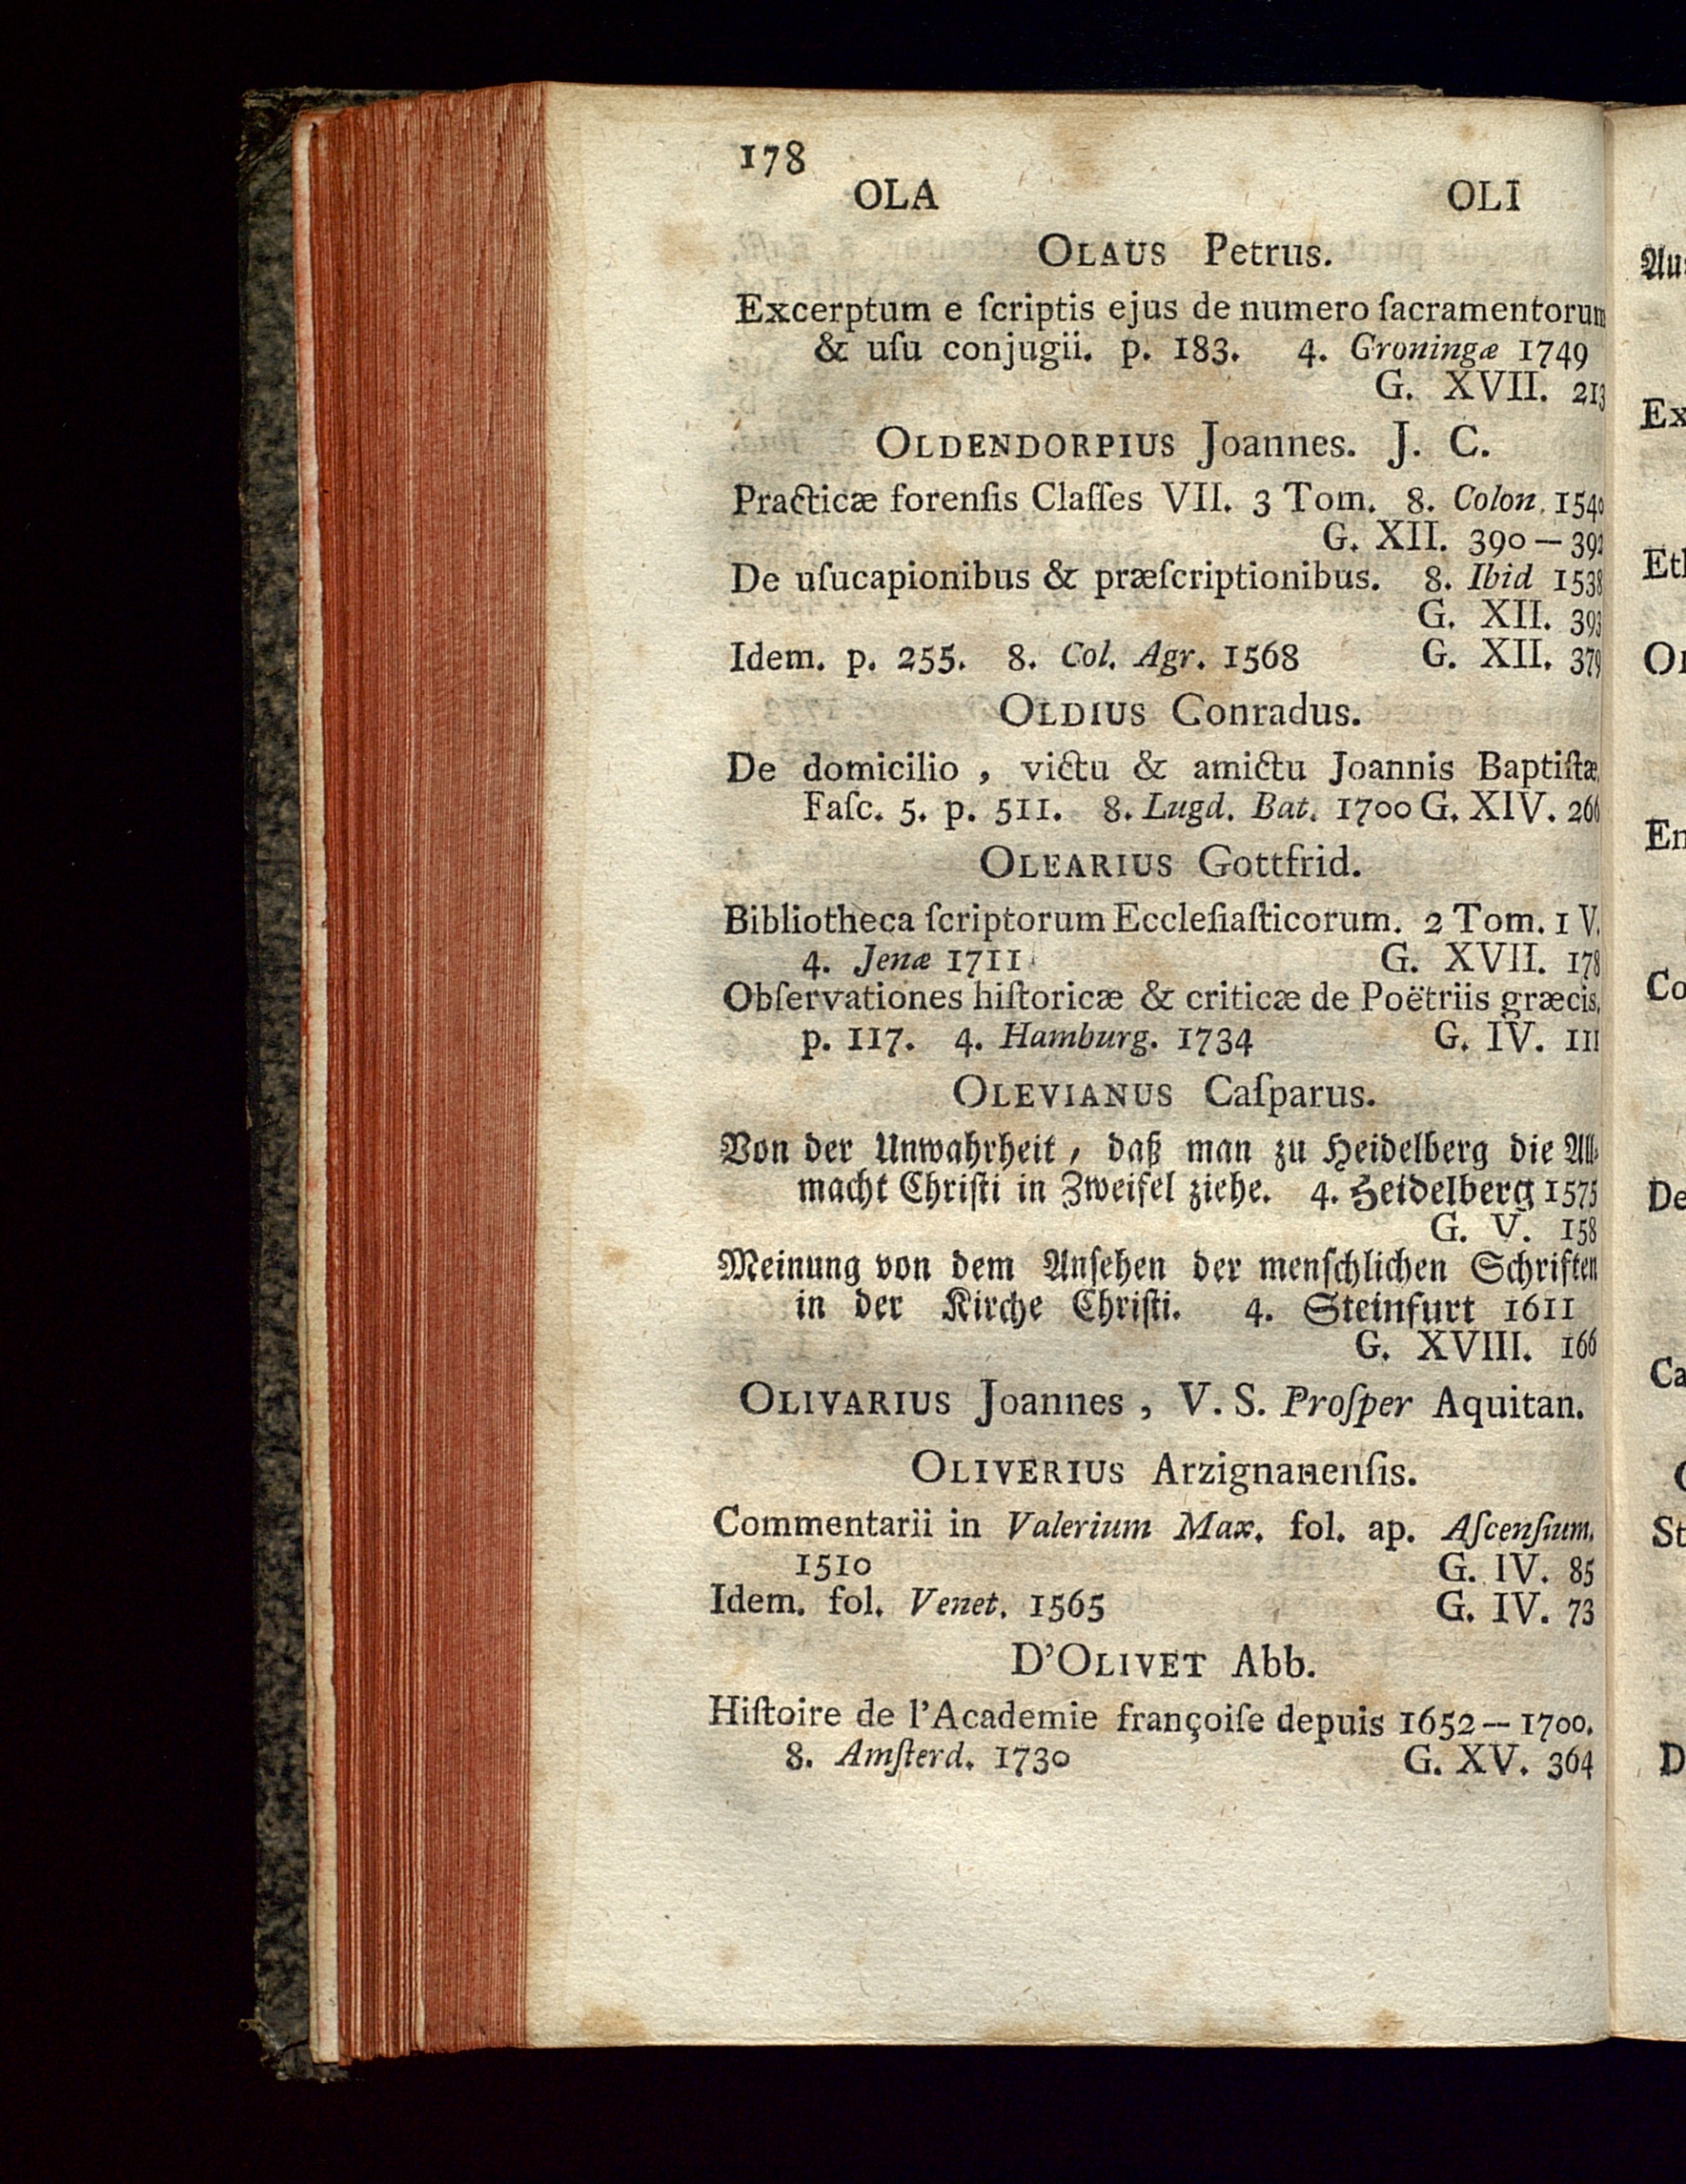 178
OLA OLI
OLAUS Petrus.
Excerptum e ſcriptis ejus de numero ſacramentorum
& uſu conjugii. p. 183. 4. Groningæ 1749
G. XVII. 213
OLDENDORPIUS Joannes. J. C.
Practicæ forenſis Claſſes VII. 3 Tom. 8. Colon. 1540
G. XII. 390 — 392
De uſucapionibus & præſcriptionibus. 8. Ibid 1538
G. XII. 393
Idem. p. 255. 8. Col. Agr. 1568 G. XII. 379
OLDIUS Conradus.
De domicilio, victu & amictu Joannis Baptiſtæ.
Faſc. 5. p. 511. 8. Lugd. Bat. 1700 G. XIV. 266
OLEARIUS Gottfrid.
Bibliotheca ſcriptorum Eccleſiaſticorum. 2 Tom. 1 V.
4. Jenæ 1711 G. XVII. 178
Obſervationes hiſtoricæ & criticæ de Poëtriis græcis.
p. 117. 4. Hamburg. 1734 G. IV. 111
OLEVIANUS Caſparus.
Von der Unwahrheit, daß man zu Heidelberg die All-
macht Chriſti in Zweifel ziehe. 4. Heidelberg 1575
G. V. 158
Meinung von dem Anſehen der menſchlichen Schriften
in der Kirche Chriſti. 4. Steinfurt 1611
G. XVIII. 166
OLIVARIUS Joannes, V. S. Proſper Aquitan.
OLIVERIUS Arzignanenſis.
Commentarii in Valerium Max. fol. ap. Aſcenſium.
1510 G. IV. 85
Idem. fol. Venet. 1565 G. IV. 73
D'OLIVET Abb.
Hiſtoire de l'Academie françoiſe depuis 1652 — 1700.
8. Amſterd. 1730 G. XV. 364